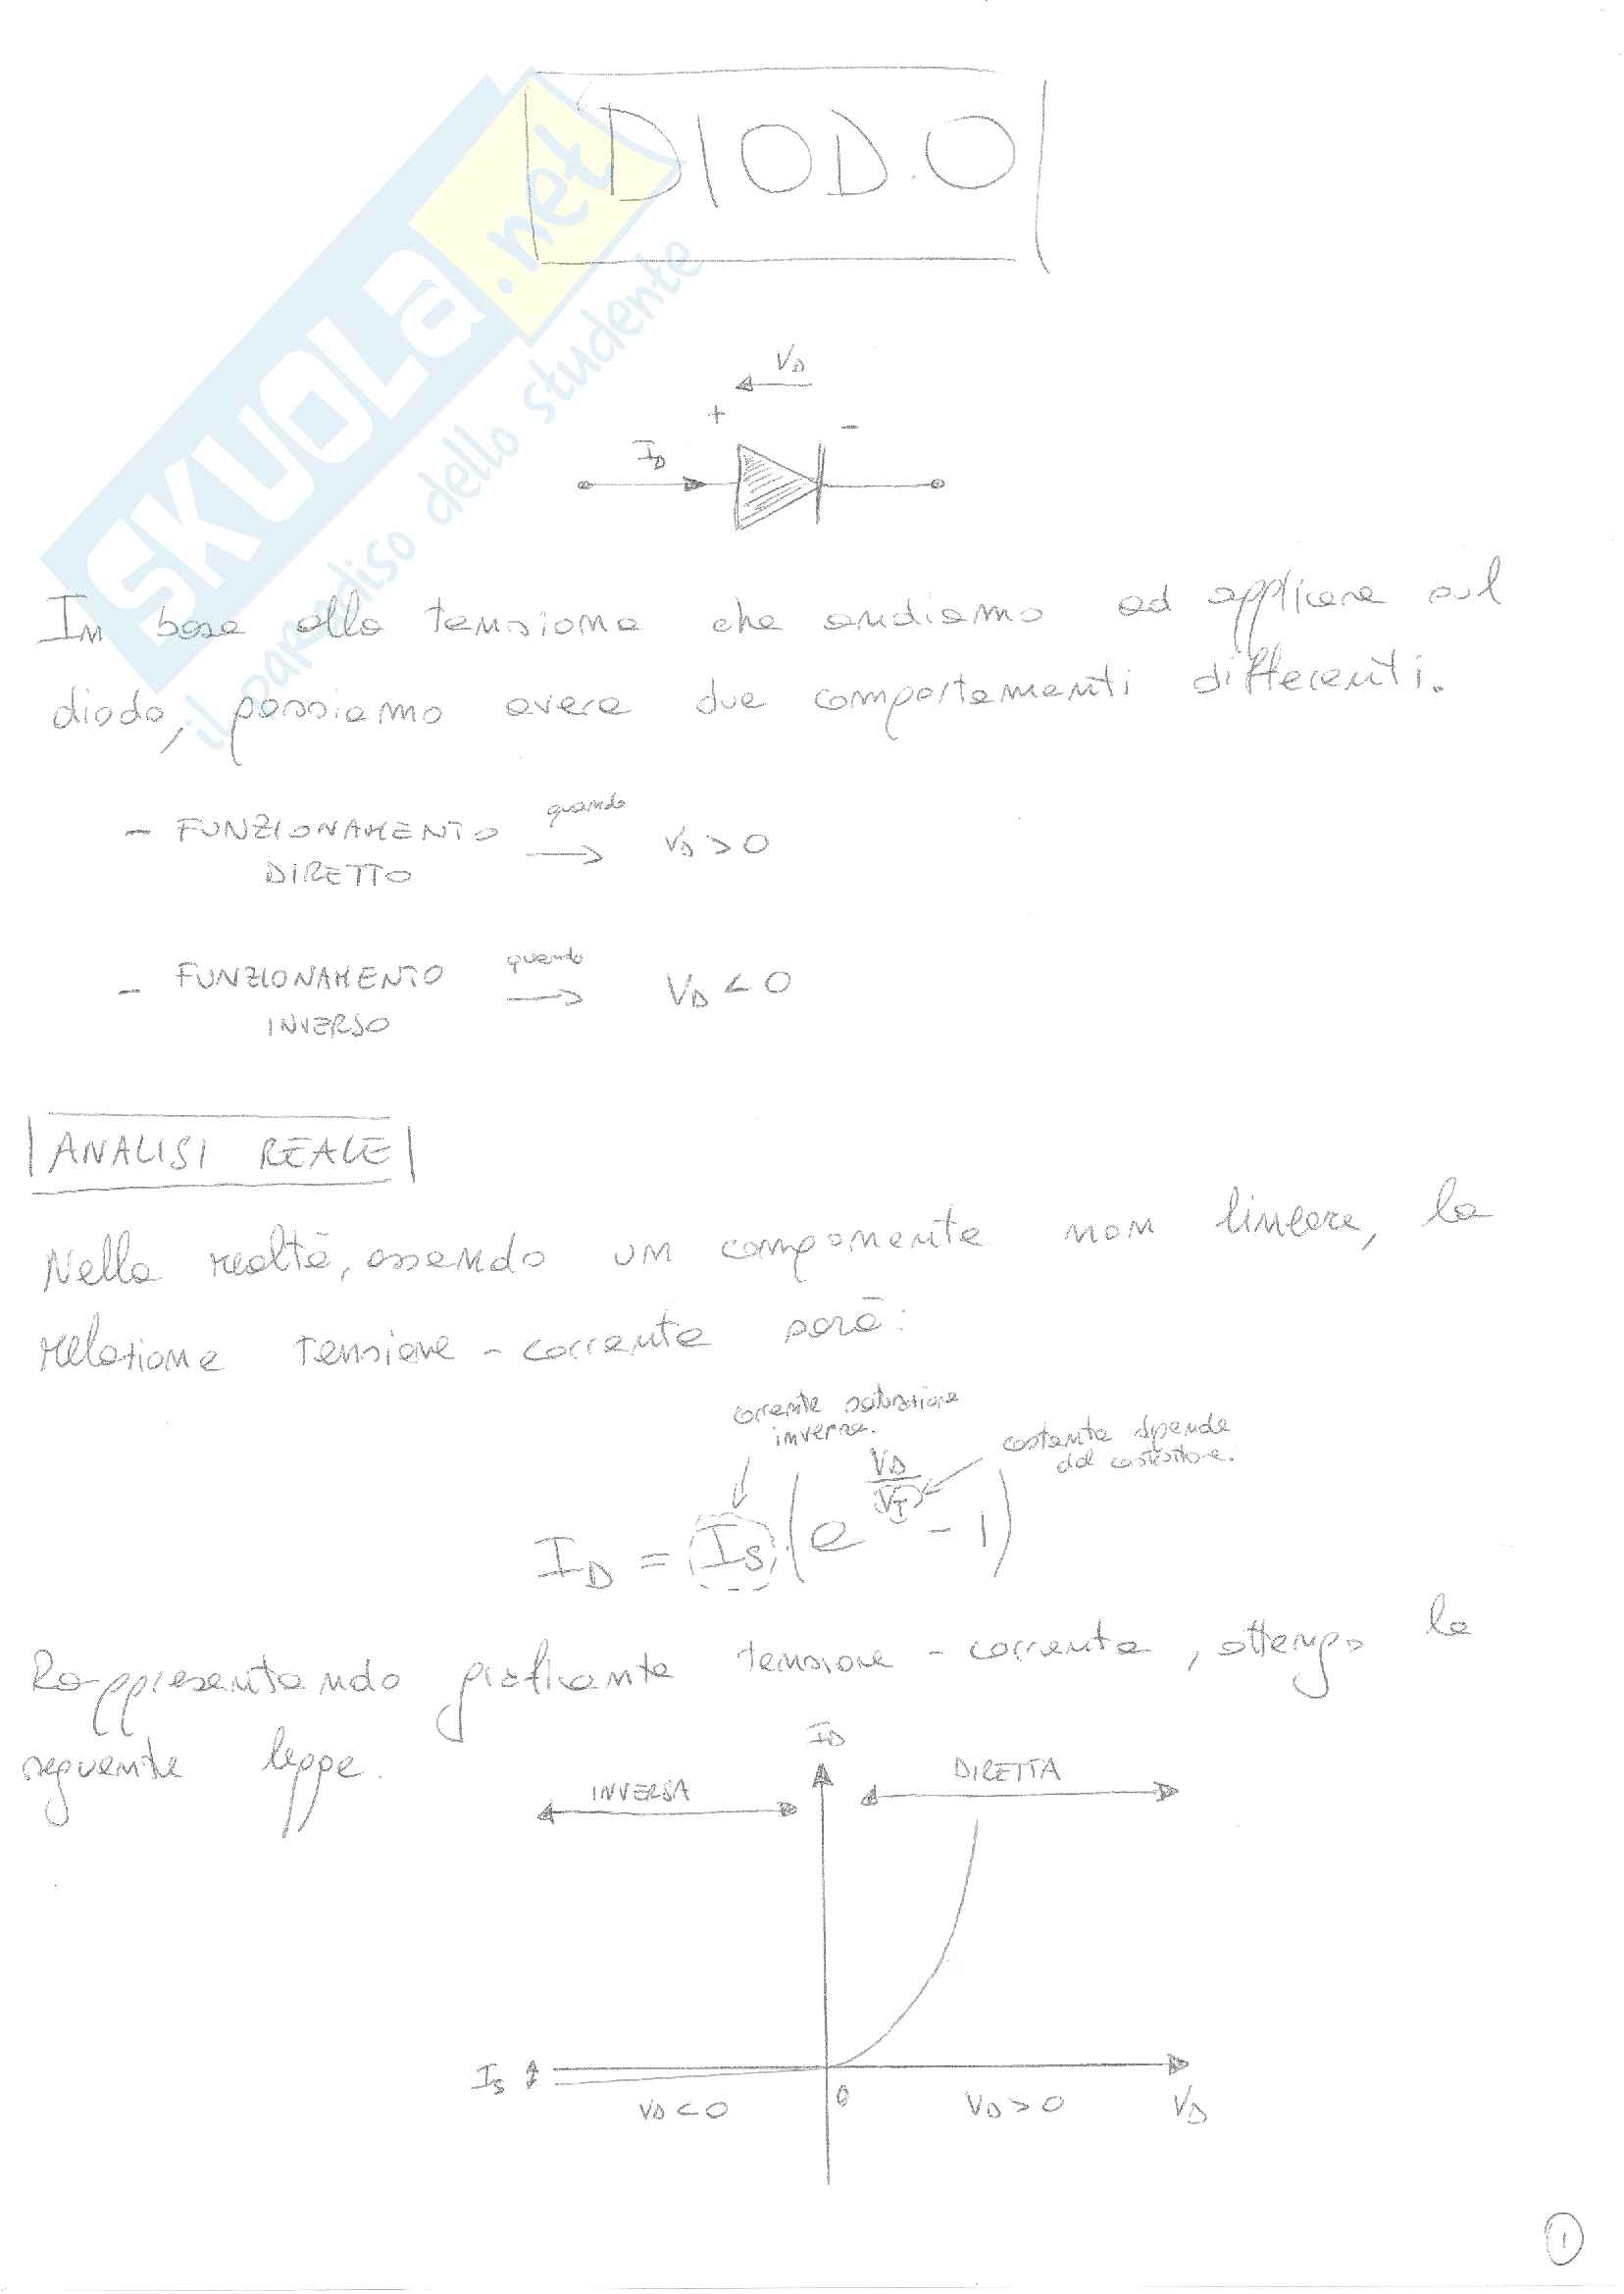 DIODO
SKUOLA.net
il paradiso dello studente
VD
+ -
ID
In base alla tensione che andiamo ad applicare sul
diodo, possiamo avere due comportamenti differenti.
- FUNZIONAMENTO quando → VD > 0
DIRETTO
- FUNZIONAMENTO quando → VD < 0
INVERSO
ANALISI REALE
Nella realtà, essendo un componente non lineare, la
relazione tensione - corrente sarà:
corrente saturazione
inversa.
costante dipende
dal costruttore.
ID = Is (e^(VD/VT) - 1)
Rappresentando graficante tensione - corrente, ottengo la
seguente legge.
ID
INVERSA
DIRETTA
Is
VD < 0
0
VD > 0
VD
1